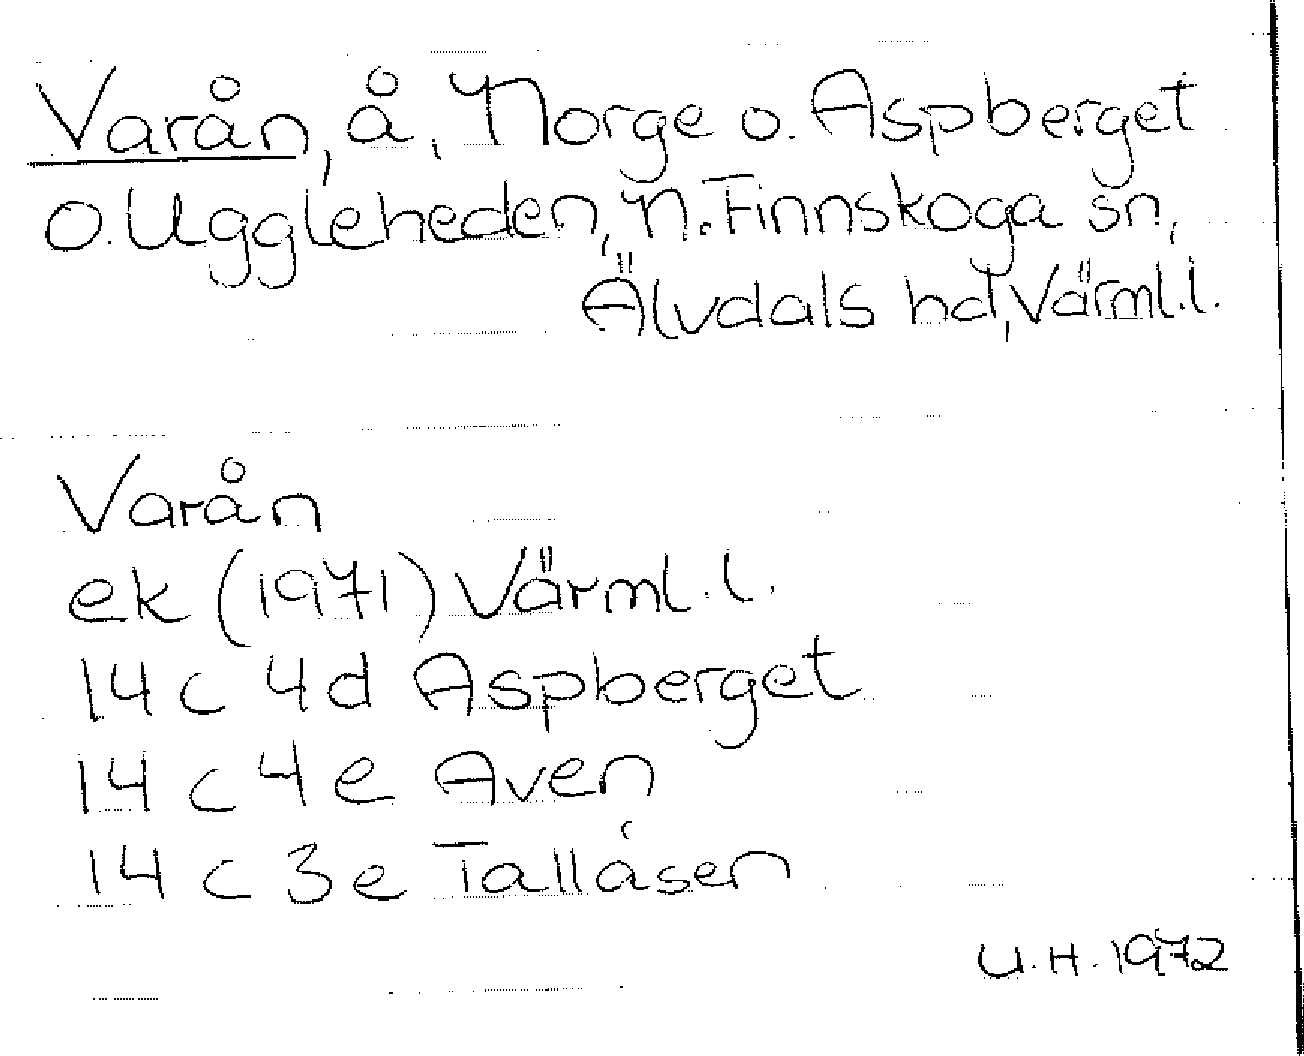 Varån, å, Norge o. Aspberget
o. Uggleheden, N. Finnskoga sn,
Älvdals hd, Värml.l.
Varån
ek (1971) Värml.l.
14 c 4d Aspberget
14 c 4 e Aven
14 c 3 e Tallåsen
U.H. 1972